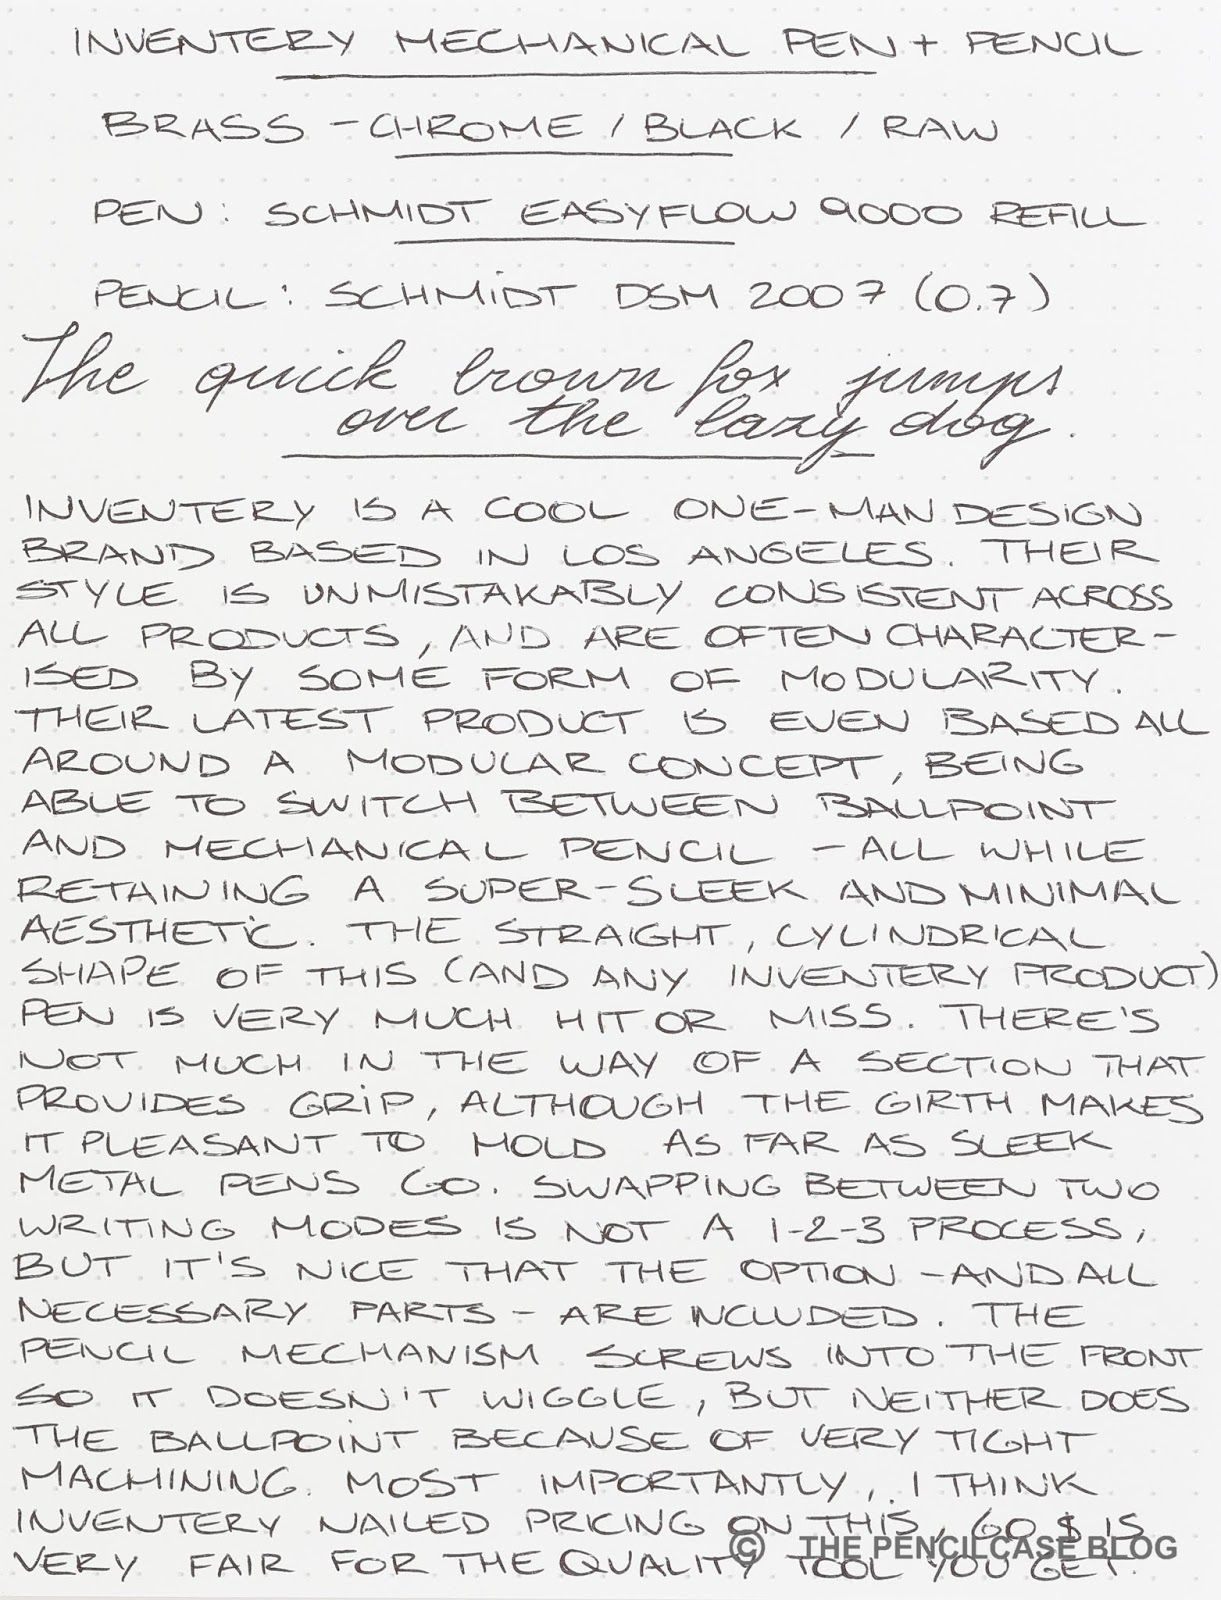 INVENTERY MECHANICAL PEN + PENCIL
BRASS - CHROME / BLACK / RAW
PEN: SCHMIDT EASYFLOW 9000 REFILL
PENCIL: SCHMIDT DSM 2007 (0.7)
The quick brown fox jumps
over the lazy dog.
INVENTERY IS A COOL ONE-MAN DESIGN
BRAND BASED IN LOS ANGELES. THEIR
STYLE IS UNMISTAKABLY CONSISTENT ACROSS
ALL PRODUCTS, AND ARE OFTEN CHARACTER-
ISED BY SOME FORM OF MODULARITY.
THEIR LATEST PRODUCT IS EVEN BASED ALL
AROUND A MODULAR CONCEPT, BEING
ABLE TO SWITCH BETWEEN BALLPOINT
AND MECHANICAL PENCIL - ALL WHILE
RETAINING A SUPER-SLEEK AND MINIMAL
AESTHETIC. THE STRAIGHT, CYLINDRICAL
SHAPE OF THIS (AND ANY INVENTERY PRODUCT)
PEN IS VERY MUCH HIT OR MISS. THERE'S
NOT MUCH IN THE WAY OF A SECTION THAT
PROVIDES GRIP, ALTHOUGH THE GIRTH MAKES
IT PLEASANT TO HOLD AS FAR AS SLEEK
METAL PENS GO. SWAPPING BETWEEN TWO
WRITING MODES IS NOT A 1-2-3 PROCESS,
BUT IT'S NICE THAT THE OPTION - AND ALL
NECESSARY PARTS - ARE INCLUDED. THE
PENCIL MECHANISM SCREWS INTO THE FRONT
SO IT DOESN'T WIGGLE, BUT NEITHER DOES
THE BALLPOINT BECAUSE OF VERY TIGHT
MACHINING. MOST IMPORTANTLY, I THINK
INVENTERY NAILED PRICING ON THIS, 60 $ IS
VERY FAIR FOR THE QUALITY TOOL YOU GET.
© THE PENCILCASE BLOG